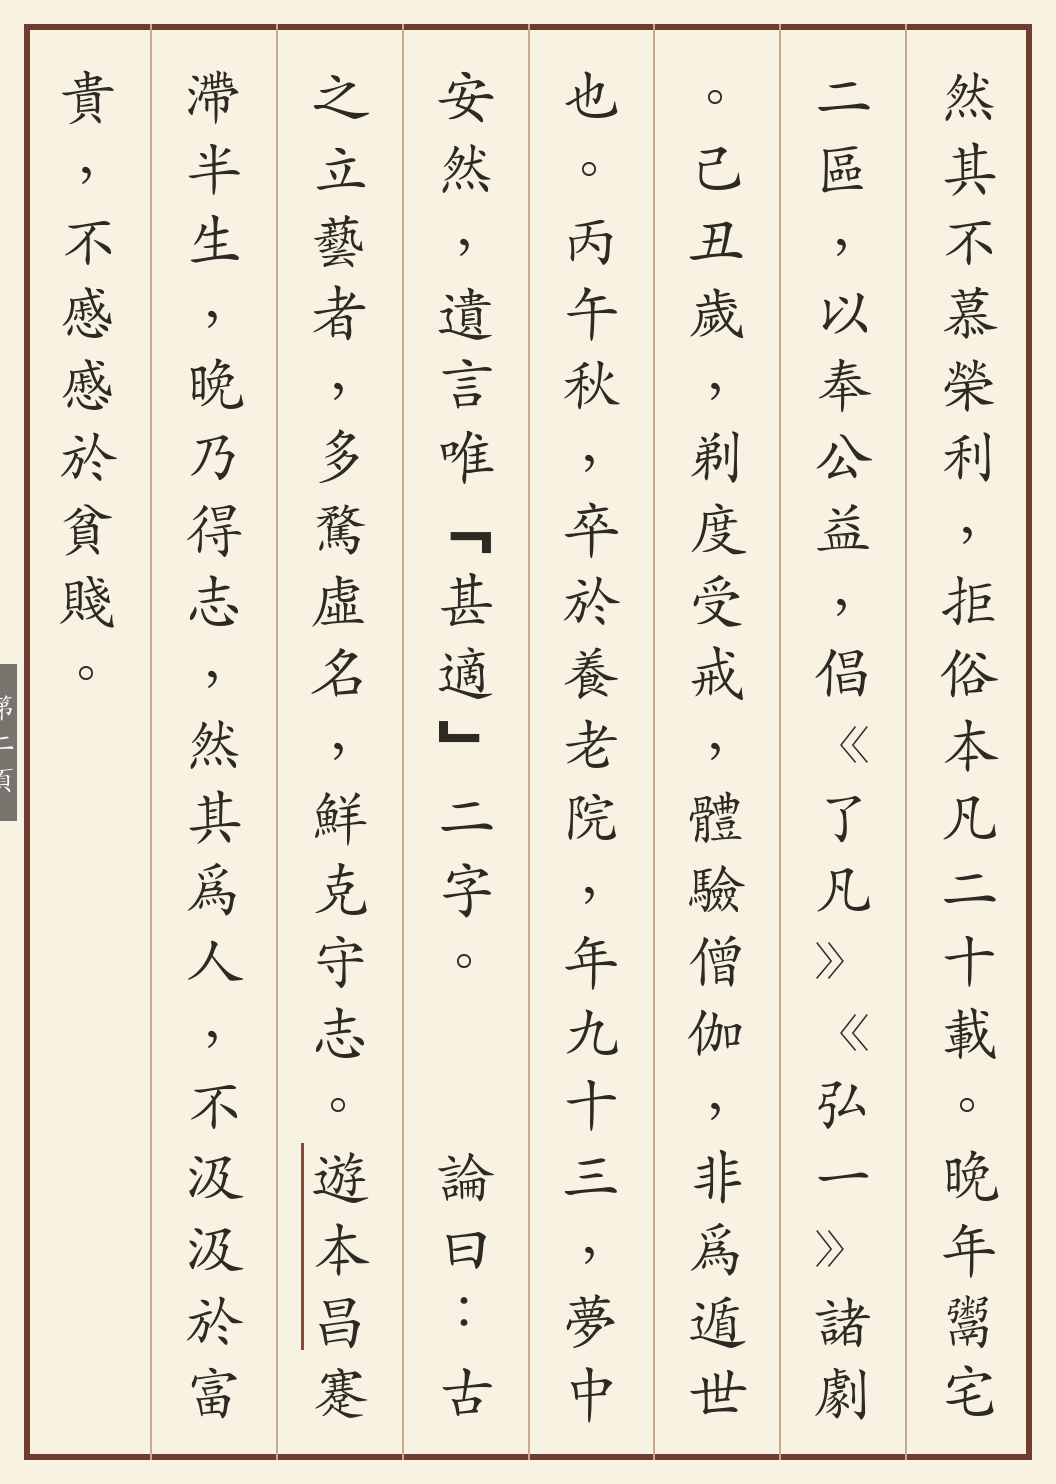 然其不慕榮利，拒俗本凡二十載。晚年鬻宅
二區，以奉公益，倡《了凡》《弘一》諸劇
。己丑歲，剃度受戒，體驗僧伽，非爲遁世
也。丙午秋，卒於養老院，年九十三，夢中
安然，遺言唯『甚適』二字。　論曰：古
之立藝者，多騖虛名，鮮克守志。遊本昌蹇
滯半生，晚乃得志，然其爲人，不汲汲於富
貴，不慼慼於貧賤。
第二頁